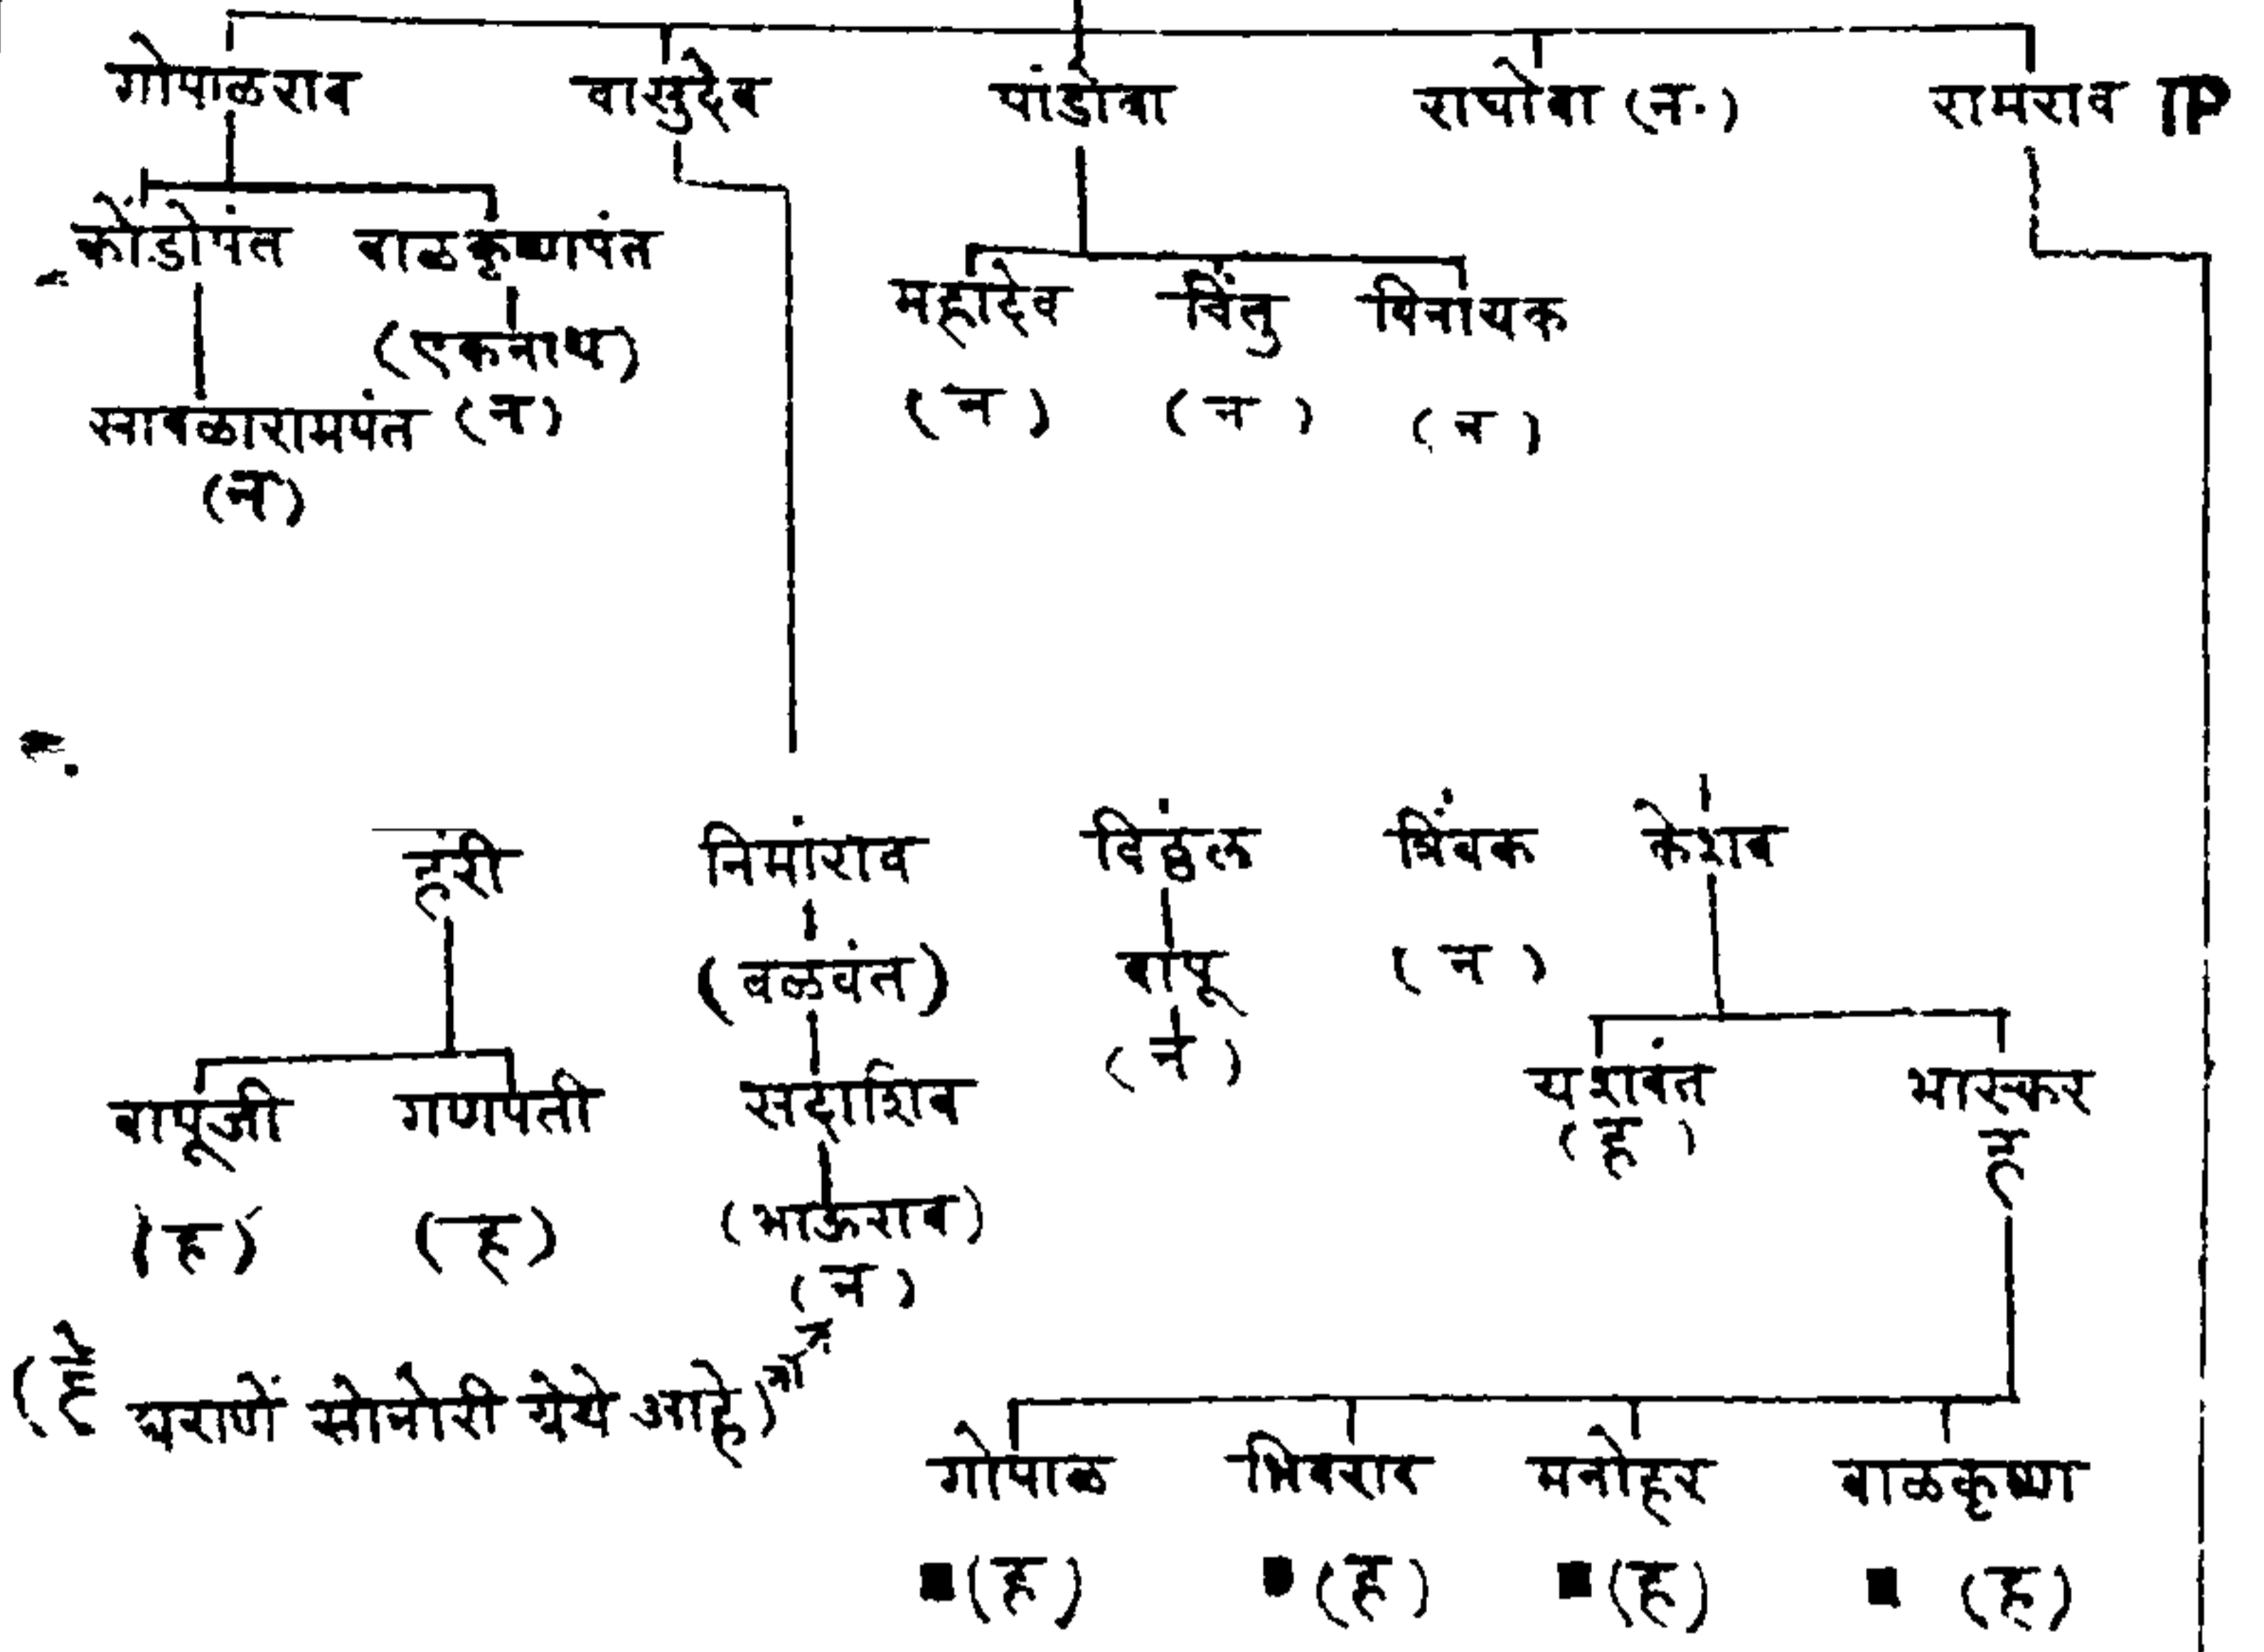 गोपाळराव वासुदेव पांडोबा राघोबा (न.) रामराव
कोंडोपंत बाळकृष्णपंत
महादेव चिंतु विनायक
(एकनाथ)
(न) (न) (न)
सावळारामपंत (न)
(न)
हरी निमांराव विठ्ठल त्रिंबक केशव
(बळवंत) बापू (न)
(न)
बापूजी गणपती सदाशिव यशवंत भास्कर
(ह) ह
(ह) (ह) (भाऊराव)
(न)
(हें घराणें सोनोरी येथे आहे)
गोपाळ भिवराव मनोहर बाळकृष्ण
(ह) (ह) (ह) (ह)